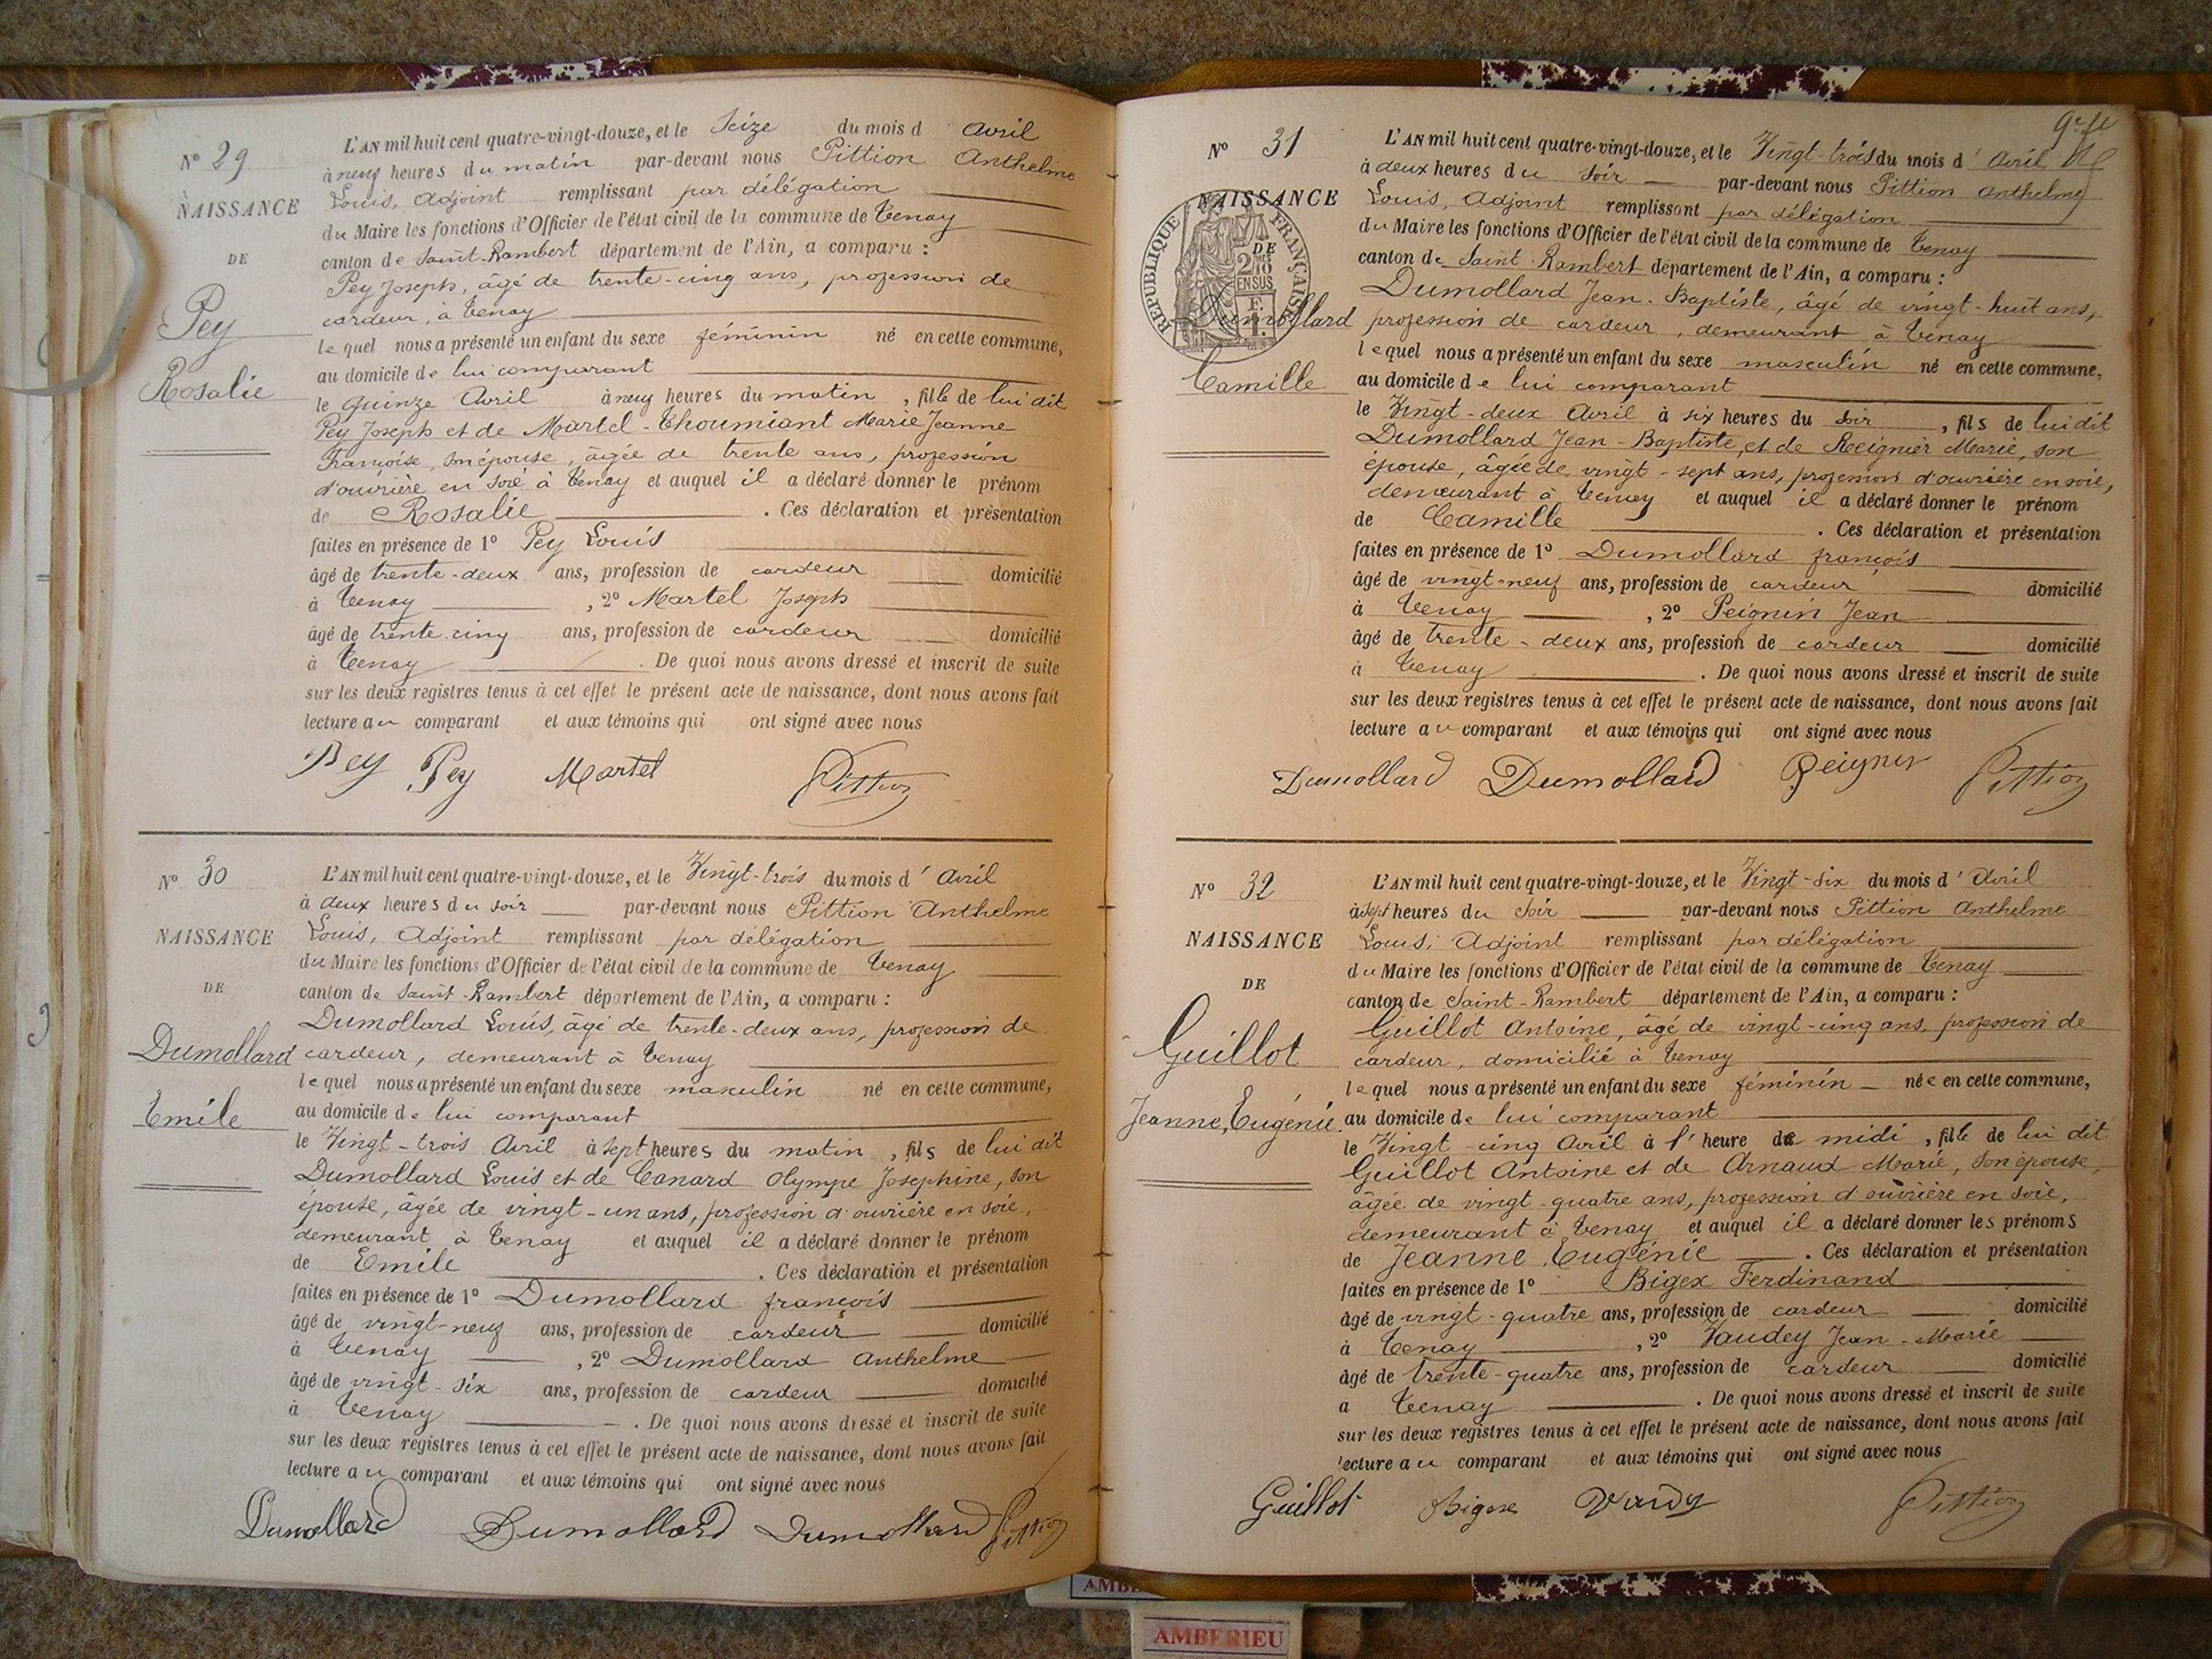 Nº 29
NAISSANCE
DE
Pey
Rosalie
L'AN mil huit cent quatre-vingt-douze, et le Seize du mois d Avril
à neuf heures du matin par-devant nous Pittion Anthelme
Louis, Adjoint remplissant par délégation
du Maire les fonctions d'Officier de l'état civil de la commune de Tenay
canton de Saint-Rambert département de l'Ain, a comparu :
Pey Joseph, âgé de trente-cinq ans, profession de
cardeur, à Tenay
lequel nous a présenté un enfant du sexe féminin né en cette commune,
au domicile de lui comparant
le quinze Avril à neuf heures du matin, fille de lui dit
Pey Joseph et de Martel-Thoumiant Marie Jeanne
Françoise, son épouse, âgée de trente ans, profession
d'ouvrière en soie à Tenay et auquel il a déclaré donner le prénom
de Rosalie. Ces déclaration et présentation
faites en présence de 1º Pey Louis
âgé de trente-deux ans, profession de cardeur domicilié
à Tenay, 2º Martel Joseph
âgé de trente-cinq ans, profession de cardeur domicilié
à Tenay. De quoi nous avons dressé et inscrit de suite
sur les deux registres tenus à cet effet le présent acte de naissance, dont nous avons fait
lecture au comparant et aux témoins qui ont signé avec nous
Pey Pey Martel Pittion
Nº 30
NAISSANCE
DE
Dumollard
Emile
L'AN mil huit cent quatre-vingt-douze, et le Vingt-trois du mois d' Avril
à deux heures du soir par-devant nous Pittion Anthelme
Louis, Adjoint remplissant par délégation
du Maire les fonctions d'Officier de l'état civil de la commune de Tenay
canton de Saint-Rambert département de l'Ain, a comparu :
Dumollard Louis, âgé de trente-deux ans, profession de
cardeur, demeurant à Tenay
lequel nous a présenté un enfant du sexe masculin né en cette commune,
au domicile de lui comparant
le Vingt-trois Avril à sept heures du matin, fils de lui dit
Dumollard Louis et de Canard Olympe Josephine, son
épouse, âgée de vingt-un ans, profession d'ouvrière en soie,
demeurant à Tenay et auquel il a déclaré donner le prénom
de Emile. Ces déclaration et présentation
faites en présence de 1º Dumollard françois
âgé de vingt-neuf ans, profession de cardeur domicilié
à Tenay, 2º Dumollard Anthelme
âgé de vingt-six ans, profession de cardeur domicilié
à Tenay. De quoi nous avons dressé et inscrit de suite
sur les deux registres tenus à cet effet le présent acte de naissance, dont nous avons fait
lecture au comparant et aux témoins qui ont signé avec nous
Dumollard Dumollard Dumollard Pittion
9e fe
Nº 31
NAISSANCE
DE
Dumollard
Camille
REPUBLIQUE FRANÇAISE
L'AN mil huit cent quatre-vingt-douze, et le Vingt-trois du mois d' Avril
à deux heures du soir par-devant nous Pittion Anthelme
Louis, Adjoint remplissant par délégation
du Maire les fonctions d'Officier de l'état civil de la commune de Tenay
canton de Saint-Rambert département de l'Ain, a comparu :
Dumollard Jean-Baptiste, âgé de vingt-huit ans,
profession de cardeur, demeurant à Tenay
lequel nous a présenté un enfant du sexe masculin né en cette commune,
au domicile de lui comparant
le Vingt-deux Avril à six heures du soir, fils de lui dit
Dumollard Jean-Baptiste, et de Reignier Marie, son
épouse, âgée de vingt-sept ans, profession d'ouvrière en soie,
demeurant à Tenay et auquel il a déclaré donner le prénom
de Camille. Ces déclaration et présentation
faites en présence de 1º Dumollard françois
âgé de vingt-neuf ans, profession de cardeur domicilié
à Tenay, 2º Peignin Jean
âgé de trente-deux ans, profession de cardeur domicilié
à Tenay. De quoi nous avons dressé et inscrit de suite
sur les deux registres tenus à cet effet le présent acte de naissance, dont nous avons fait
lecture au comparant et aux témoins qui ont signé avec nous
Dumollard Dumollard Peignin Pittion
Nº 32
NAISSANCE
DE
Guillot
Jeanne, Eugénie
L'AN mil huit cent quatre-vingt-douze, et le Vingt-six du mois d' Avril
à sept heures du soir par-devant nous Pittion Anthelme
Louis, Adjoint remplissant par délégation
du Maire les fonctions d'Officier de l'état civil de la commune de Tenay
canton de Saint-Rambert département de l'Ain, a comparu :
Guillot Antoine, âgé de vingt-cinq ans, profession de
cardeur, domicilié à Tenay
lequel nous a présenté un enfant du sexe féminin née en cette commune,
au domicile de lui comparant
le Vingt-cinq Avril à l'heure de midi, fille de lui dit
Guillot Antoine et de Arnaud Marie, son épouse,
âgée de vingt-quatre ans, profession d'ouvrière en soie,
demeurant à Tenay et auquel il a déclaré donner les prénoms
de Jeanne, Eugénie. Ces déclaration et présentation
faites en présence de 1º Bigex Ferdinand
âgé de vingt-quatre ans, profession de cardeur domicilié
à Tenay, 2º Vaudey Jean-Marie
âgé de trente-quatre ans, profession de cardeur domicilié
à Tenay. De quoi nous avons dressé et inscrit de suite
sur les deux registres tenus à cet effet le présent acte de naissance, dont nous avons fait
lecture au comparant et aux témoins qui ont signé avec nous
Guillot Bigex Vaudey Pittion
AMBERIEU